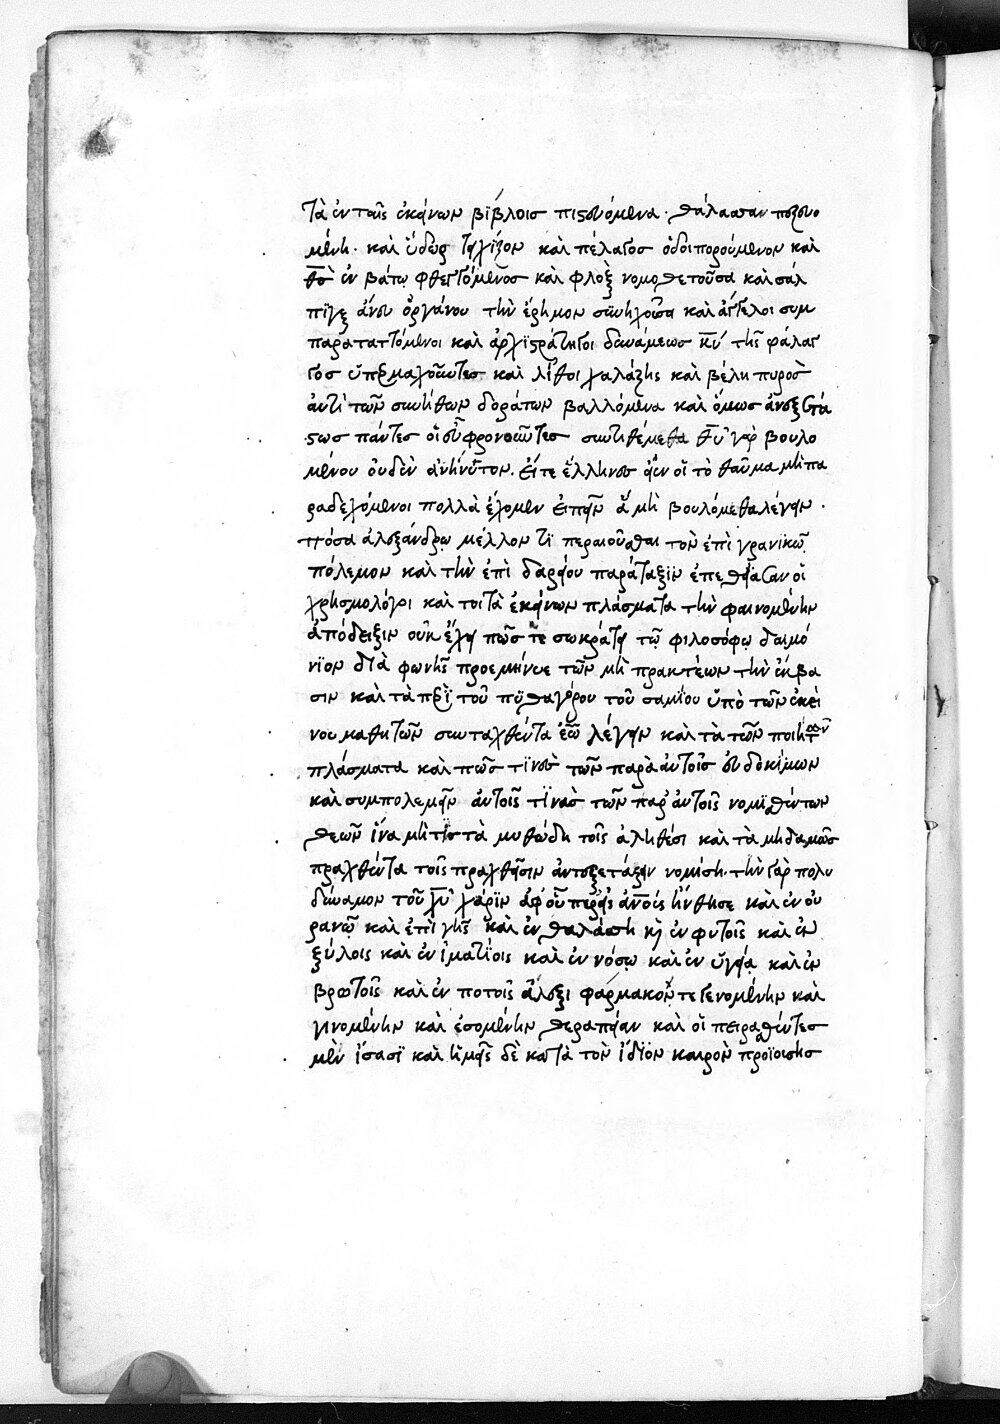 Τὰ ἐν ταῖς ἐκείνων βϊβλοισ πιστευόμενα· θάλασσαν πεζευο
μένη· καὶ ὕδωρ τειχίζον καὶ πέλαγοσ ὁδοιπορούμενον καὶ
θσ̅ ἐν βάτῳ φθεγγόμενοσ καὶ φλοξ νομοθετοῦσα καὶ σάλ
πιγξ ἄνευ ὀργάνου τὴν ἔρημον συνηχοῦσα καὶ ἄγγελοι συμ
παρατατόμενοι καὶ ἀρχϊστράτηγοι δυνάμεωσ κυ̅ τῆς φάλαγ
γοσ ὑπερμαχοῦντεσ καὶ λίθοι χαλάζης καὶ βέλη πυρὸσ
ἀντὶ τῶν συνήθων δοράτων βαλλόμενα καὶ ὅμωσ ἀνεξετά
στως πάντες οἱ εὐφρονοῦντεσ συντιθέμεθα θυ̅ γὰρ βουλο
μένου οὐδὲν ἀνήνϋτον. εἴτε ἕλληνεσ εἶεν οἱ τὸ θαῦμα μὴ πα
ραδεχόμενοι πολλὰ ἔχομεν εἰπεῖν ἃ μὴ βουλόμεθα λέγειν.
πόσα ἀλεξάνδρῳ μέλλοντϊ περαιοῦσθαι τὸν ἐπὶ γρανικῶ
πόλεμον καὶ τὴν ἐπὶ δαρείου παράταξϊν ἐπεθείασαν οἱ
χρησμολόγοι καὶ τοι τὰ ἐκείνων πλάσματα τὴν φαινομένην
ἀπόδειξιν οὐκ ἔχει πῶσ τε σωκράτει τῷ φιλοσόφῳ δαιμό
νϊον διὰ φωνῆς προεμήνυε τῶν μὴ πρακτέων τὴν ἔκβα
σιν καὶ τὰ περὶ τοῦ πϋθαγόρου τοῦ σαμΐου ὑπὸ τῶν ἐκεί
νου μαθητῶν συνταχθέντα ἐῶ λέγειν καὶ τὰ τῶν ποιητῶν
πλάσματα καὶ πῶσ τϊνεσ τῶν παρὰ αὐτοῖσ εὐδοκίμων
καὶ συμπολεμεῖν αὐτοῖς τϊνὰσ τῶν παρ' αὐτοῖς νομϊσθέντων
θεῶν ἵνα μή τισ τὰ μυθώδη τοῖς ἀληθέσι καὶ τὰ μηδαμῶς
πραχθέντα τοῖς πραχθεῖσιν ἀντεξετάζειν νομίσῃ. τὴν γὰρ πολυ
δύναμον τοῦ χυ̅ χάρϊν ἀφ' οὗπερ εἰς ἀν̅ους ἤνθησε καὶ ἐν οὐ
ρανῶ καὶ ἐπὶ γῆς καὶ ἐν θαλάσσῃ κ̀ ἐν φυτοῖς καὶ ἐν
ξύλοις καὶ ἐν ἱματΐοις καὶ ἐν νόσῳ καὶ ἐν ὑγείᾳ καὶ ἐν
βρωτοῖς καὶ ἐν ποτοῖς ἀλεξι φάρμακον τε γενομένην καὶ
γινομένην καὶ ἐσομένην θεραπείαν καὶ οἱ πειραθέντες
μὲν ἴσασϊ καὶ ἡμεῖς δὲ κατὰ τὸν ἴδϊον καιρὸν προϊούσης